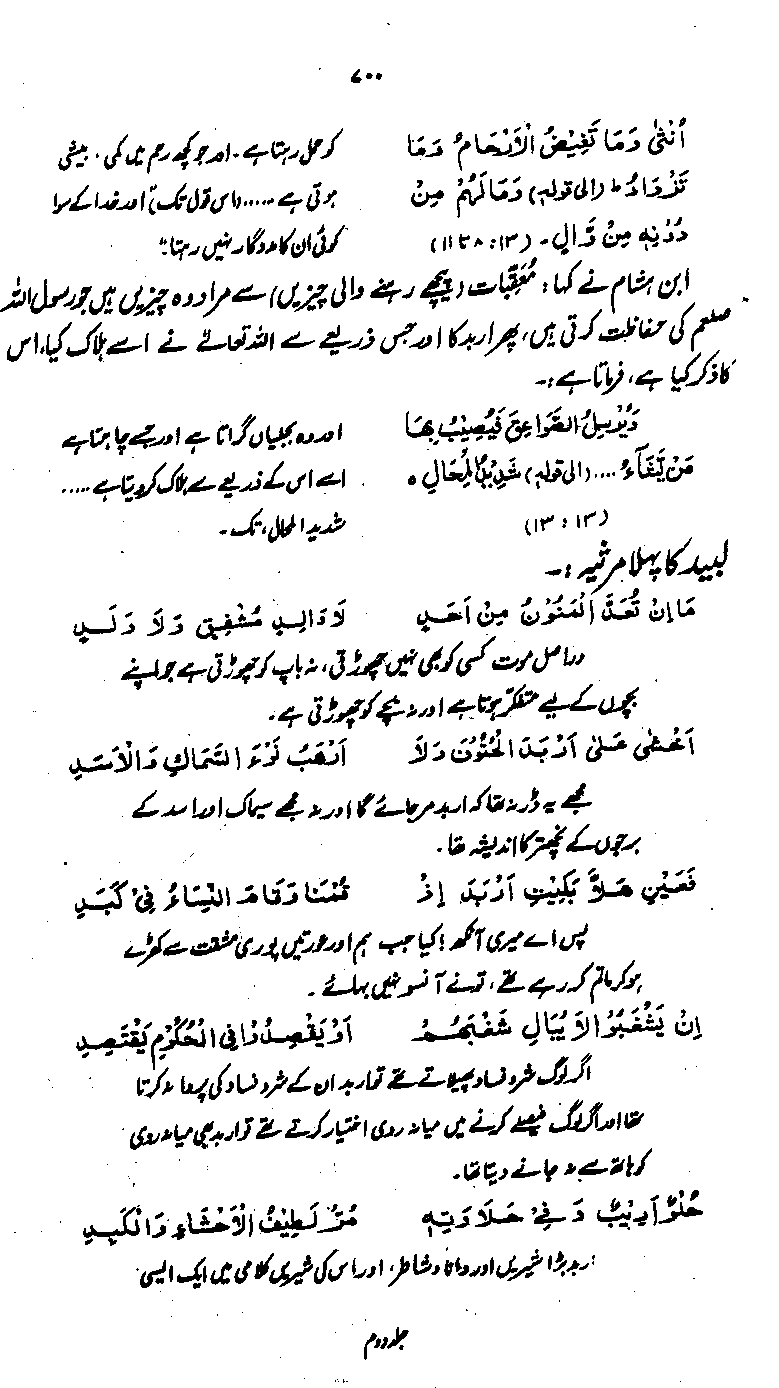 ۷۰۰
اُنْثٰی وَمَا تَغِیْضُ الْاَرْحَامُ وَمَا کو حمل رہتا ہے۔ اور جو کچھ رحم میں کمی، بیشی
تَزْدَادُ ط (الی قولہ) وَمَا لَهُمْ مِنْ ہوتی ہے ..... (اس قول تک) اور خدا کے سوا
دُوْنِهٖ مِنْ وَّالٍ۔ (۱۳: ۸ تا ۱۱) کوئی ان کا مددگار نہیں رہتا۔"
ابن ہشام نے کہا: مُعَقِّبَات (پیچھے رہنے والی چیزیں) سے مراد وہ چیزیں ہیں جو رسول اللہ
صلعم کی حفاظت کرتی ہیں، پھر اربد کا اور جس ذریعے سے اللہ تعالےٰ نے اسے ہلاک کیا، اس
کا ذکر کیا ہے، فرماتا ہے:۔
وَیُرْسِلُ الصَّوَاعِقَ فَیُصِیْبُ بِهَا اور وہ بجلیاں گراتا ہے اور جسے چاہتا ہے
مَنْ یَّشَآءُ .... (الی قولہ) شَدِیْدُ الْمِحَالِ ہ اسے اس کے ذریعے سے ہلاک کر دیتا ہے .....
(۱۳: ۱۳) شدید المحال، تک۔
لبید کا پہلا مرثیہ:۔
مَا اِنْ تُعَدِّ الْمَنُوْنُ مِنْ اَحَدٍ لَا وَالِدٍ مُشْفِقٍ وَلَا وَلَدٍ
دراصل موت کسی کو بھی نہیں چھوڑتی، نہ باپ کو چھوڑتی ہے جو اپنے
بچوں کے لیے متفکر ہوتا ہے اور نہ بچے کو چھوڑتی ہے۔
اَخْشٰی عَلٰی اَرْبَدَ الْحُتُوْفَ وَلَا اَرْهَبُ نَوْءَ السِّمَاكِ وَالْاَسَدِ
مجھے یہ ڈر نہ تھا کہ اربد مر جائے گا اور نہ مجھے سیماک اور اسد کے
برجوں کے نچھتر کا اندیشہ تھا۔
فَعَیْنِ هَلَّا بَكَیْتِ اَرْبَدَ اِذْ قُمْنَا وَقَامَ النِّسَاءُ فِیْ كَبَدٍ
پس اے میری آنکھ! کیا جب ہم اور عورتیں پوری مشقت سے کھڑے
ہو کر ماتم کر رہے تھے، تو نے آنسو نہیں بہائے۔
اِنْ یَشْغَبُوْا لَا یُبَالِ شَغْبَهُمْ اَوْ یَقْصِدُوْا فِی الْحُكُوْمِ یَقْتَصِدِ
اگر لوگ شر و فساد پھیلاتے تھے تو اربد ان کے شر و فساد کی پروا نہ کرتا
تھا اور اگر لوگ فیصلے کرنے میں میانہ روی اختیار کرتے تھے تو اربد بھی میانہ روی
کو ہاتھ سے نہ جانے دیتا تھا۔
حُلْوٌ اَرِیْبٌ وَفِیْ حَلَاوَتِهٖ مُرٌّ لَطِیْفُ الْاَحْشَاءِ وَالْكَبِدِ
اربد بڑا شیریں اور دانا و شاطر، اور اس کی شیریں کلامی میں ایک ایسی
جلد دوم